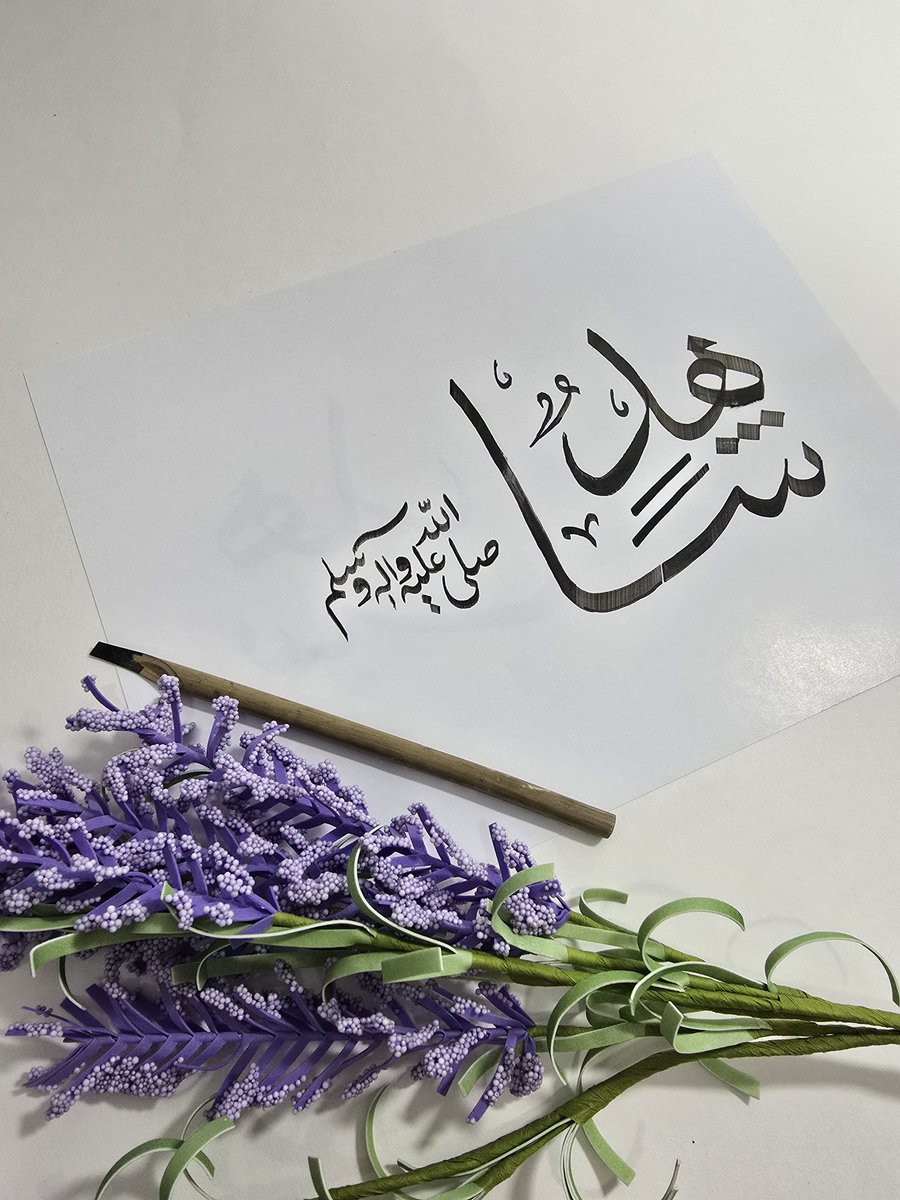 شاهد
صلى الله عليه واله وسلم